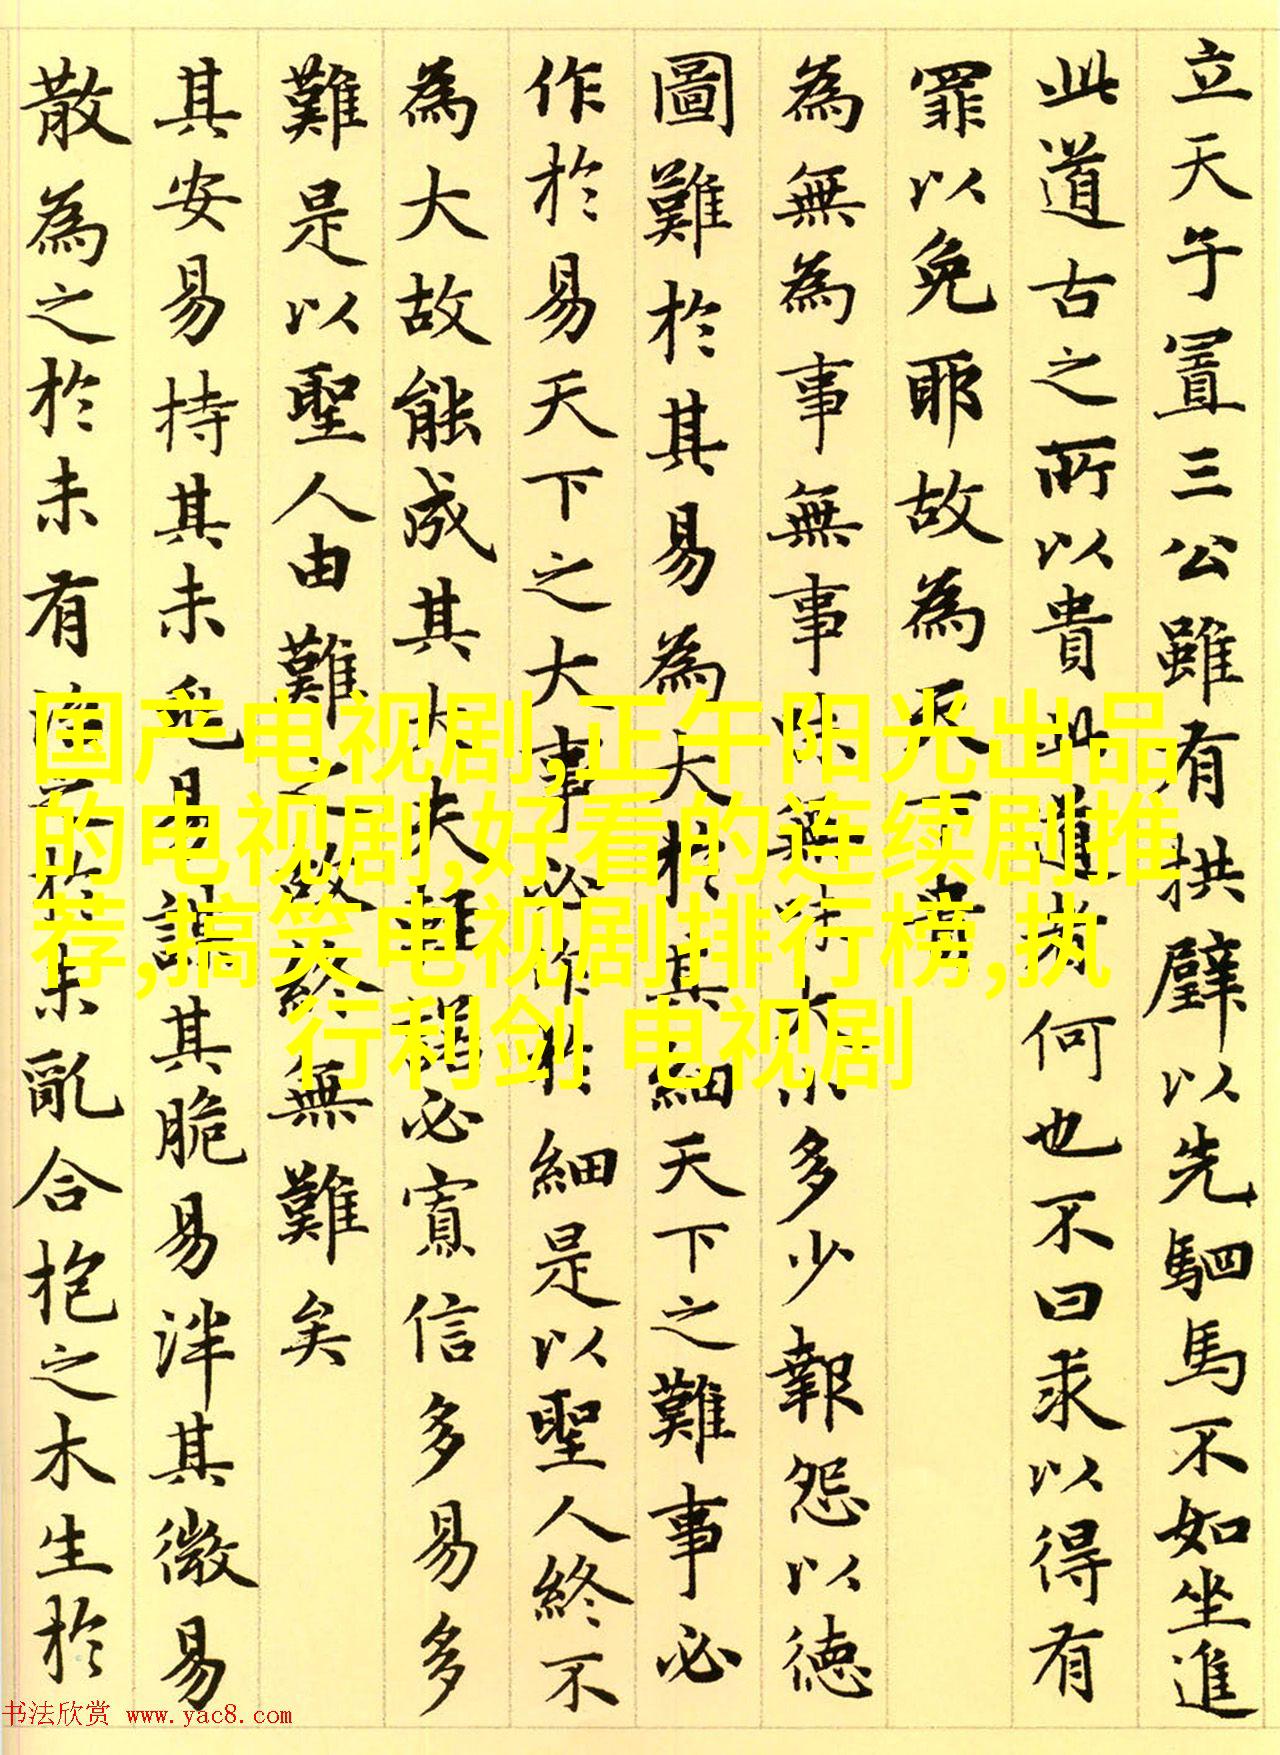 立天子置三公雖有拱璧以先駟馬不如坐進
此道古之所以貴此道者何也不曰求以得有
罪以免耶故為天下貴
為無為事無事味無味大小多少報怨以德
圖難於其易為大於其細天下之難事必
作於易天下之大事必作於細是以聖人終不
為大故能成其大夫輕諾必寡信多易多
難是以聖人由難之故終無難矣
其安易持其未兆易謀其脆易泮其微易
散為之於未有治之於未亂合抱之木生於
国产电视剧,正午阳光出品
的电视剧,好看的连续剧推
荐,搞笑电视剧排行榜,执
行利剑 电视剧
书法欣赏 www.yac8.com